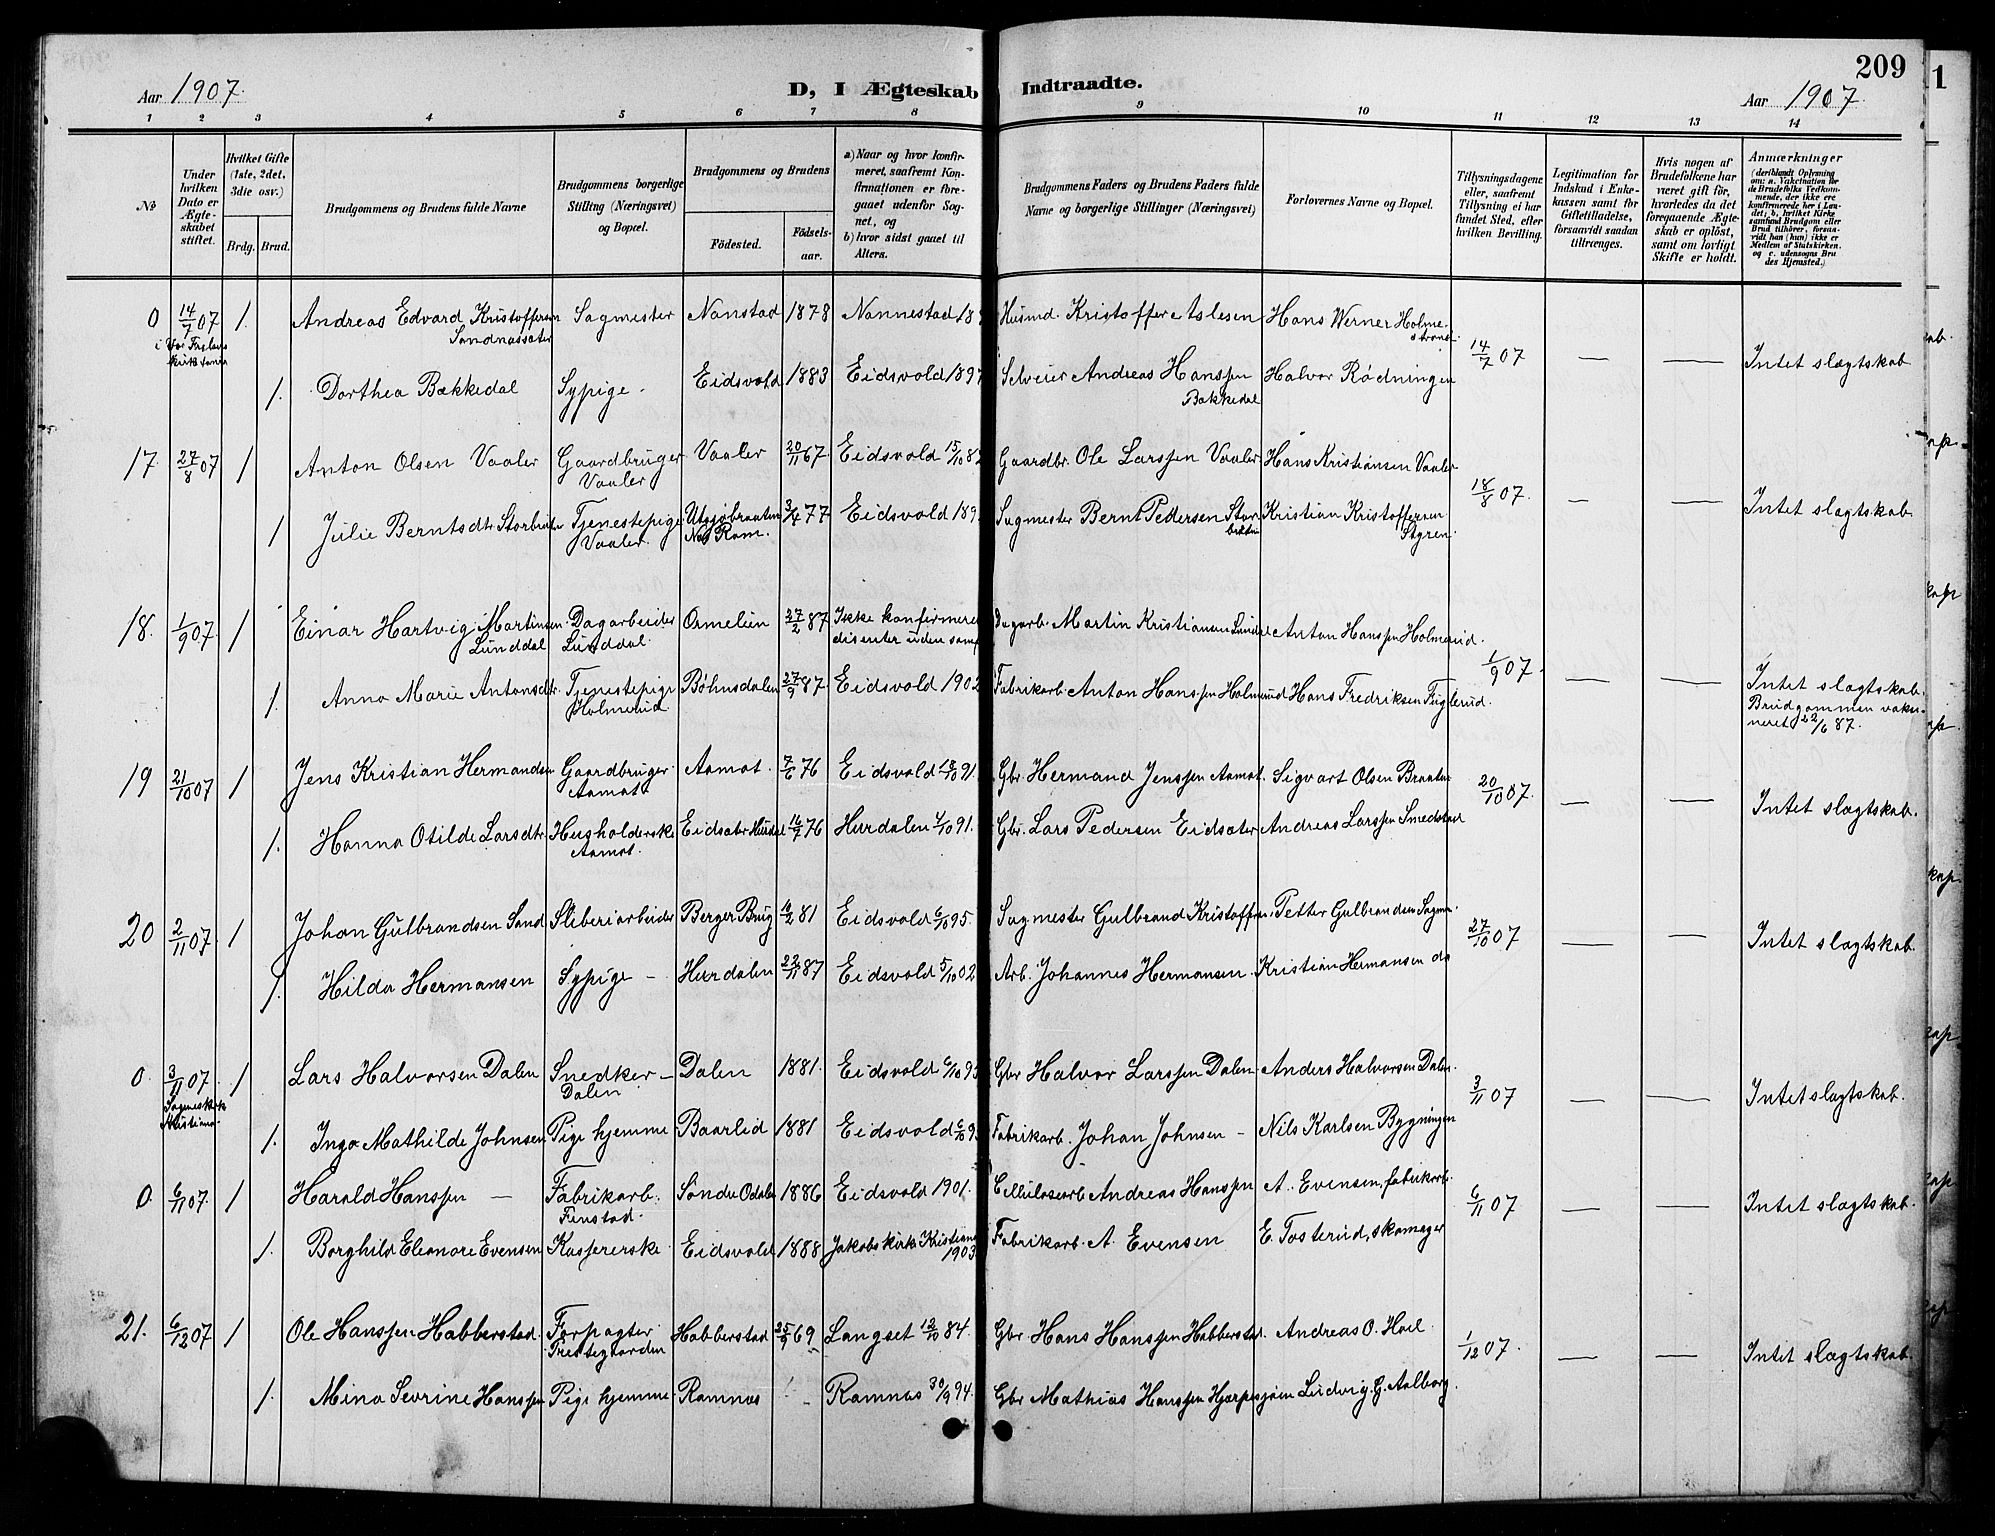 209
Aar 1907.
D, I Ægteskab Indtraadte.
Aar 1907.
1 2 3 4 5 6 7 8 9 10 11 12 13 14
No
Under hvilken Dato er Ægteskabet stiftet.
Hvilket Gifte (1ste, 2det, 3die osv.)
Brdg. Brud.
Brudgommens og Brudens fulde Navne
Brudgommens borgerlige Stilling (Næringsvei) og Bopæl.
Brudgommens og Brudens
Födested. Födselsaar.
a) Naar og hvor konfirmeret, saafremt Konfirmationen er foregaaet udenfor Sognet, og
b) hvor sidst gaaet til Alters.
Brudgommens Faders og Brudens Faders fulde Navne og borgerlige Stillinger (Næringsvei)
Forlovernes Navne og Bopæl.
Tillysningsdagene eller, saafremt Tillysning ei har fundet Sted, efter hvilken Bevilling.
Legitimation for Indskud i Enkekassen samt for Giftetilladelse, forsaavidt saadan tiltrænges.
Hvis nogen af Brudefolkene har været gift för, hvorledes da det foregaaende Ægteskab er oplöst, samt om lovligt Skifte er holdt.
Anmærkninger (deriblandt Oplysning om: a. Vakcination for de Brudefolks Vedkommende, der ikke ere konfirmerede her i Landet; b. hvilket Kirkesamfund Brudgom eller Brud tilhörer, forsaavidt han (hun) ikke er Medlem af Statskirken. og c. udensogns Brudes Hjemsted.)
0 14/7 07 1. Andreas Edvard Kristoffersen Sandnessæter Sagmester Nanstad 1878 Nannestad Husmd. Kristoffer Aslesen Hans Werner Holmestrand 14/7 07 — — Intet slægtskab
i Vor Frelsers kirke
1. Dorthea Bækkedal Sypige. Eidsvold 1883 Eidsvold 1897 Selveier Andreas Hanssen Bækkedal Halvor Rödningen
17. 27/8 07 1 Anton Olsen Vaaler Gaardbruger Vaaler Vaaler 20/11 67. Eidsvold 15/10 82 Gaardbr. Ole Larssen Vaaler Hans Kristiansen Vaaler 18/8 07. — — Intet slagtskab.
1 Julie Berntsdtr Storbekken Tjenestepige Vaaler. Utsjöbraaten 3/4 77 Eidsvold Sagmester Bernt Pedersen Storbekken Kristian Kristoffersen Styren
18. 1/9 07. 1 Einar Hartvig Martinsen Lunddal Dagarbeider Lunddal. Ormelien 27/2 87 Ikke konfirmeret disenter uden samf. Dagarb. Martin Kristiansen Lunddal Anton Hanssen Holmerud. 1/9 07. — — Intet slagtskab.
Brudgommen vaksineret 22/6 87.
1. Anna Marie Antonsdtr. Tjenestepige Holmerud Böhnsdalen 27/9 87. Eidsvold 1902 Fabrikarb. Anton Hanssen Holmerud Hans Fredriksen Fuglerud.
19 21/10 07 1 Jens Kristian Hermandsen Gaardbruger Aamot Aamot. 7/6 76 Eidsvold 18/10 91. Gbr. Hermand Jenssen Aamot. Sigvart Olsen Braaten 20/10 07. — — Intet slagtskab.
1. Hanna Otilde Larsdtr. Husholderske Aamot. Eidsæter Hurdal 16/7 76 Hurdalen 4/10 91. Gbr. Lars Pedersen Eidsæter Andreas Larssen Smedstad
20 2/11 07. 1 Johan Gulbrandsen Sand Sliberiarbeider Berger Brug 10/2 81 Eidsvold 6/10 95. Sagmester Gulbrand Kristoffersen Petter Gulbrandsen Sagm. 27/10 07 — — Intet slagtskab.
1. Hilda Hermansen Sypige — Hurdalen 22/11 87 Eidsvold 5/10 02 Arb. Johannes Hermansen. Kristian Hermansen do
0. 3/11 07. 1 Lars Halvorsen Dalen Snedker — Dalen Dalen 1881. Eidsvold 6/10 95 Gbr Halvor Larssen Dalen Anders Halvorsen Dalen. 3/11 07 — — Intet slagtskab.
Kristiania.
1. Inga Mathilde Johnsen Pige hjemme Baarlid 1881 Eidsvold 6/10 95 Fabrikarb. Johan Johnsen — Nils Karlsen Bygningen
0. 6/11 07. 1 Harald Hanssen — Fabrikarb. Finstad. Söndre Odalen 1886 Eidsvold 1901. Cellulosearb Andreas Hanssen A. Evensen, fabrikarb. 6/11 07 — — Intet slagtskab.
1. Borghild Eleonore Evensen Kaspererske Eidsvold 1888 Jakobs kirke Kristiania 1903 Fabrikarb. A. Evensen E. Tosterud, skomager
21. 6/12 07 1 Ole Hanssen Habberstad. Forpagter Prestegaarden Habberstad 25/9 69 Langset 12/10 84. Gbr. Hans Hanssen Habberstad. Andreas O. Hoel. 1/12 07. — — Intet slagtskab.
1. Mina Sevrine Hanssen Pige hjemme Ramnæs — Ramnæs 30/9 94. Gbr Mathias Hanssen Hjærpesjøen Ludvig G. Aalborg.